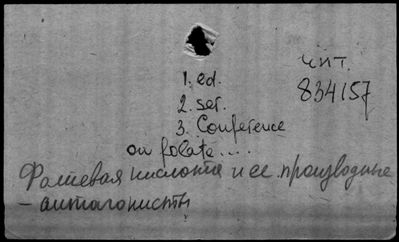 чит.
834157
1. ed.
2. ser.
3. Conference
on folate....
Фолиевая кислота и ее производные
- антагонисты